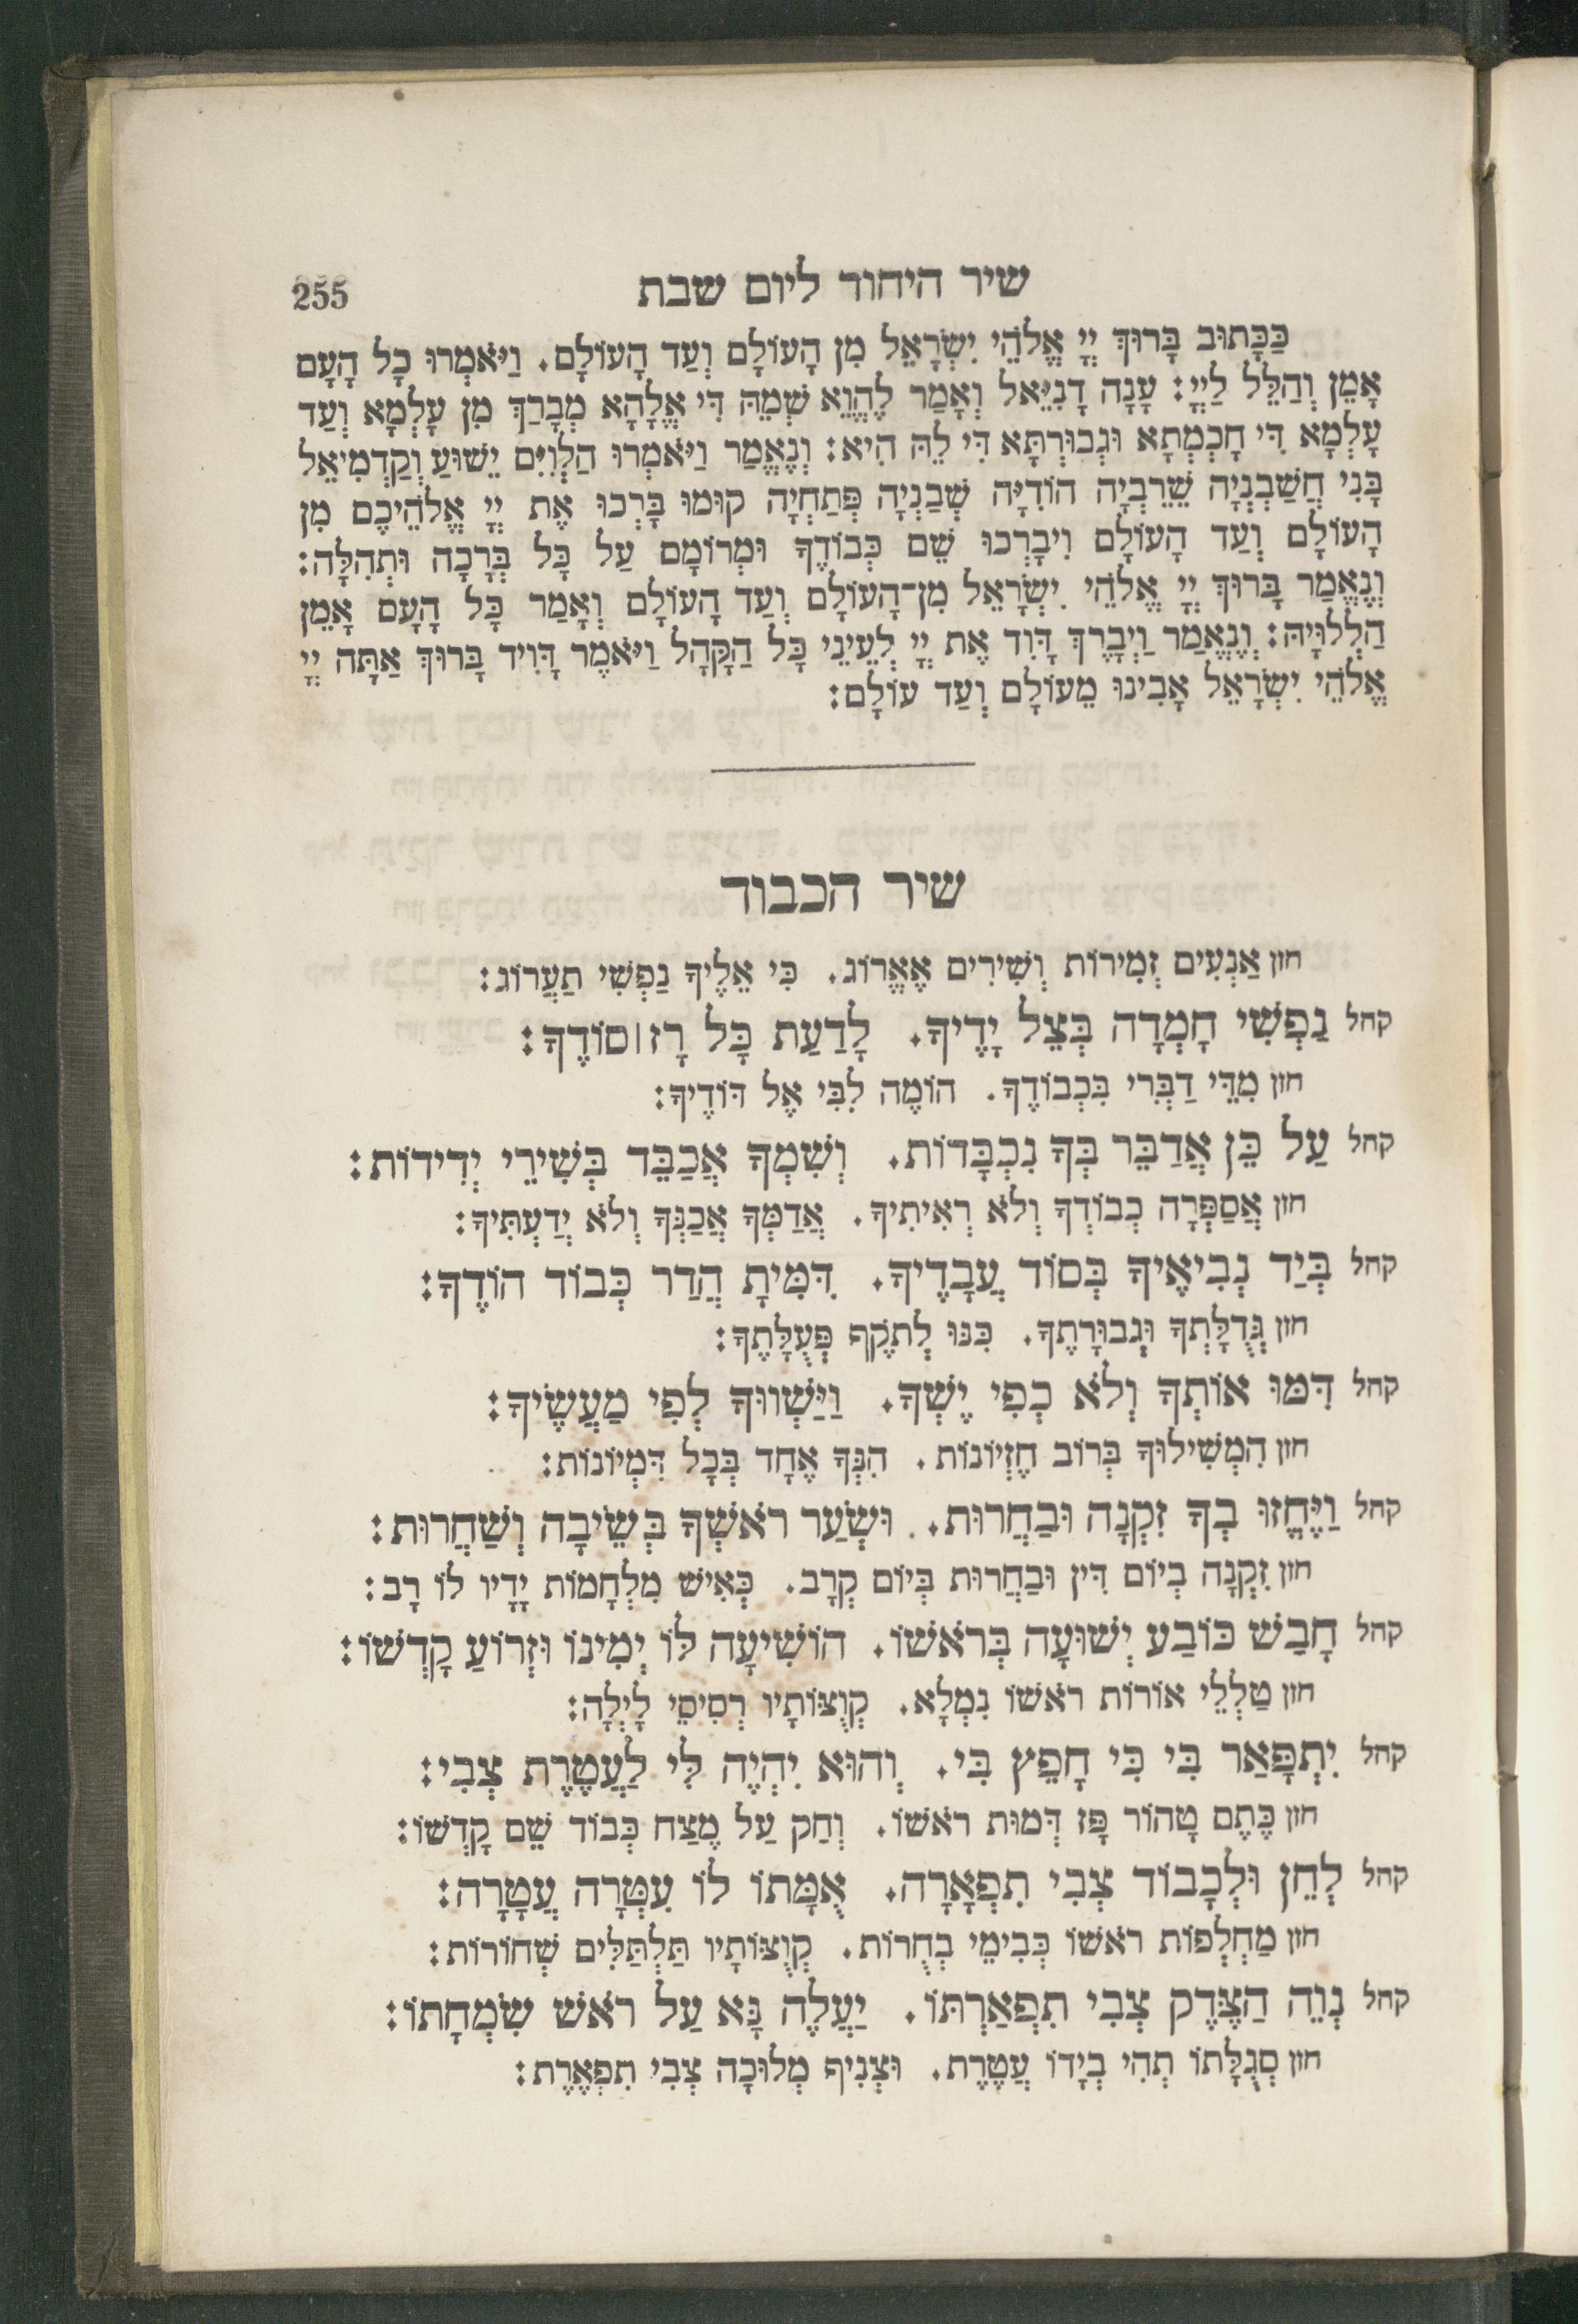 שיר היחוד ליום שבת 255
כַּכָּתוּב בָּרוּךְ יְיָ אֱלֹהֵי יִשְׂרָאֵל מִן הָעוֹלָם וְעַד הָעוֹלָם. וַיֹּאמְרוּ כָל הָעָם
אָמֵן וְהַלֵּל לַיְיָ: עָנָה דָנִיֵּאל וְאָמַר לֶהֱוֵא שְׁמֵהּ דִּי אֱלָהָא מְבָרַךְ מִן עָלְמָא וְעַד
עָלְמָא דִּי חָכְמְתָא וּגְבוּרְתָּא דִּי לֵהּ הִיא: וְנֶאֱמַר וַיֹּאמְרוּ הַלְוִיִּם יֵשׁוּעַ וְקַדְמִיאֵל
בָּנִי חֲשַׁבְנְיָה שֵׁרֵבְיָה הוֹדִיָּה שְׁבַנְיָה פְּתַחְיָה קוּמוּ בָּרְכוּ אֶת יְיָ אֱלֹהֵיכֶם מִן
הָעוֹלָם וְעַד הָעוֹלָם וִיבָרְכוּ שֵׁם כְּבוֹדֶךָ וּמְרוֹמָם עַל כָּל בְּרָכָה וּתְהִלָּה:
וְנֶאֱמַר בָּרוּךְ יְיָ אֱלֹהֵי יִשְׂרָאֵל מִן־הָעוֹלָם וְעַד הָעוֹלָם וְאָמַר כָּל הָעָם אָמֵן
הַלְלוּיָהּ: וְנֶאֱמַר וַיְבָרֶךְ דָּוִד אֶת יְיָ לְעֵינֵי כָּל הַקָּהָל וַיֹּאמֶר דָּוִיד בָּרוּךְ אַתָּה יְיָ
אֱלֹהֵי יִשְׂרָאֵל אָבִינוּ מֵעוֹלָם וְעַד עוֹלָם:
שיר הכבוד
חזן אַנְעִים זְמִירוֹת וְשִׁירִים אֶאֱרוֹג. כִּי אֵלֶיךָ נַפְשִׁי תַעֲרוֹג:
קהל נַפְשִׁי חָמְדָה בְּצֵל יָדֶיךָ. לָדַעַת כָּל רָז סוֹדֶךָ:
חזן מִדֵּי דַבְּרִי בִּכְבוֹדֶךָ. הוֹמֶה לִבִּי אֶל דּוֹדֶיךָ:
קהל עַל כֵּן אֲדַבֵּר בְּךָ נִכְבָּדוֹת. וְשִׁמְךָ אֲכַבֵּד בְּשִׁירֵי יְדִידוֹת:
חזן אֲסַפְּרָה כְבוֹדְךָ וְלֹא רְאִיתִיךָ. אֲדַמְּךָ אֲכַנְּךָ וְלֹא יְדַעְתִּיךָ:
קהל בְּיַד נְבִיאֶיךָ בְּסוֹד עֲבָדֶיךָ. דִּמִּיתָ הֲדַר כְּבוֹד הוֹדֶךָ:
חזן גְּדֻלָּתְךָ וּגְבוּרָתֶךָ. כִּנּוּ לְתֹקֶף פְּעֻלָּתֶךָ:
קהל דִּמּוּ אוֹתְךָ וְלֹא כְפִי יֶשְׁךָ. וַיַּשְׁווּךָ לְפִי מַעֲשֶׂיךָ:
חזן הִמְשִׁילוּךָ בְּרוֹב חֶזְיוֹנוֹת. הִנְּךָ אֶחָד בְּכָל דִּמְיוֹנוֹת:
קהל וַיֶּחֱזוּ בְךָ זִקְנָה וּבַחֲרוּת. וּשְׂעַר רֹאשְׁךָ בְּשֵׂיבָה וְשַׁחֲרוּת:
חזן זִקְנָה בְיוֹם דִּין וּבַחֲרוּת בְּיוֹם קְרָב. כְּאִישׁ מִלְחָמוֹת יָדָיו לוֹ רָב:
קהל חָבַשׁ כּוֹבַע יְשׁוּעָה בְּרֹאשׁוֹ. הוֹשִׁיעָה לּוֹ יְמִינוֹ וּזְרוֹעַ קָדְשׁוֹ:
חזן טַלְלֵי אוֹרוֹת רֹאשׁוֹ נִמְלָא. קְוֻצּוֹתָיו רְסִיסֵי לָיְלָה:
קהל יִתְפָּאַר בִּי כִּי חָפֵץ בִּי. וְהוּא יִהְיֶה לִּי לַעֲטֶרֶת צְבִי:
חזן כֶּתֶם טָהוֹר פָּז דְּמוּת רֹאשׁוֹ. וְחַק עַל מֶצַח כְּבוֹד שֵׁם קָדְשׁוֹ:
קהל לְחֵן וּלְכָבוֹד צְבִי תִפְאָרָה. אֻמָּתוֹ לוֹ עִטְּרָה עֲטָרָה:
חזן מַחְלְפוֹת רֹאשׁוֹ כְּבִימֵי בְחֻרוֹת. קְוֻצּוֹתָיו תַּלְתַּלִּים שְׁחוֹרוֹת:
קהל נְוֵה הַצֶּדֶק צְבִי תִפְאַרְתּוֹ. יַעֲלֶה נָּא עַל רֹאשׁ שִׂמְחָתוֹ:
חזן סְגֻלָּתוֹ תְהִי בְיָדוֹ עֲטֶרֶת. וּצְנִיף מְלוּכָה צְבִי תִפְאֶרֶת: